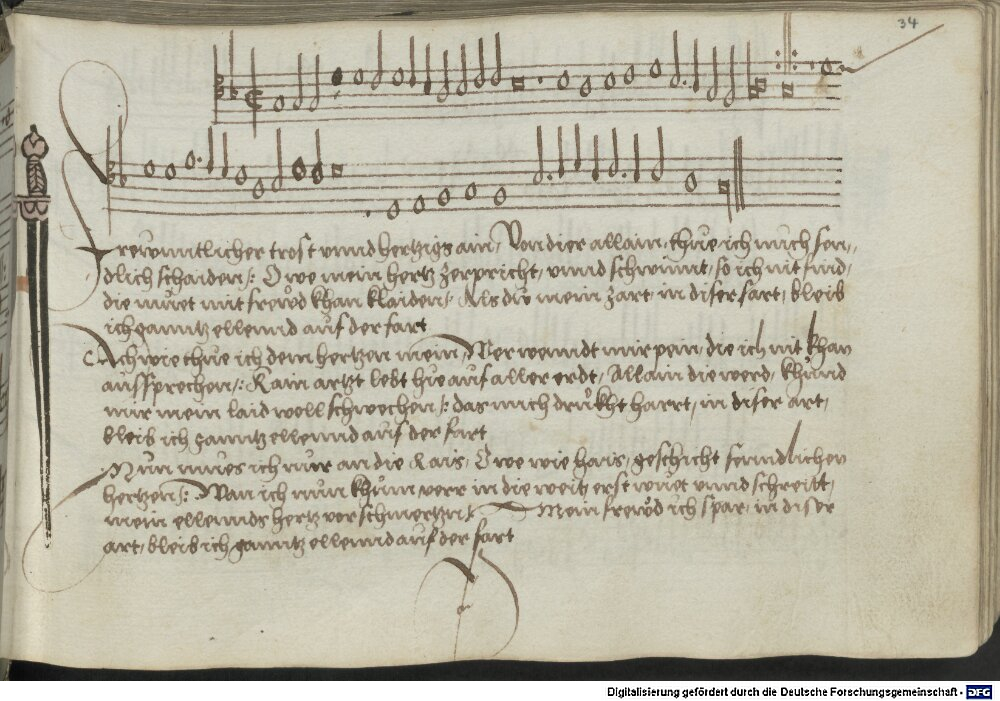 34
Frewnntlicher trost vnnd hertzigs ain, Von dier allain, thue ich mich sen,,
dlich schaiden /: O we mein hertz zerpricht, vnnd schwinnt, so ich nit find,
die muet mit frewd khan klaiden /: Als dw mein zart, in diser fart, bleib
ich ganntz ellennd auf der fart
Ach wie thue ich dem hertzen mein, Wer wenndt mir pein, die ich nit khan
aussprechen /: Kain artzt lebt hie auf aller erdt, Allain die werd, khund
mir mein laid woll schwechen /: das mich drukht hart, in diser art,
bleib ich ganntz ellennd auf der fart
Nun mues ich nur an die Rais, O we wie hais, geschicht senndlichen
hertzen /: Wan ich nun khum verr in die weit, erst wuet vnnd schreitt,
mein ellennds hertz vor schmertzn /: Mein frewd ich spar, in diser
art, bleib ich ganntz ellennd auf der fart
Digitalisierung gefördert durch die Deutsche Forschungsgemeinschaft - DFG